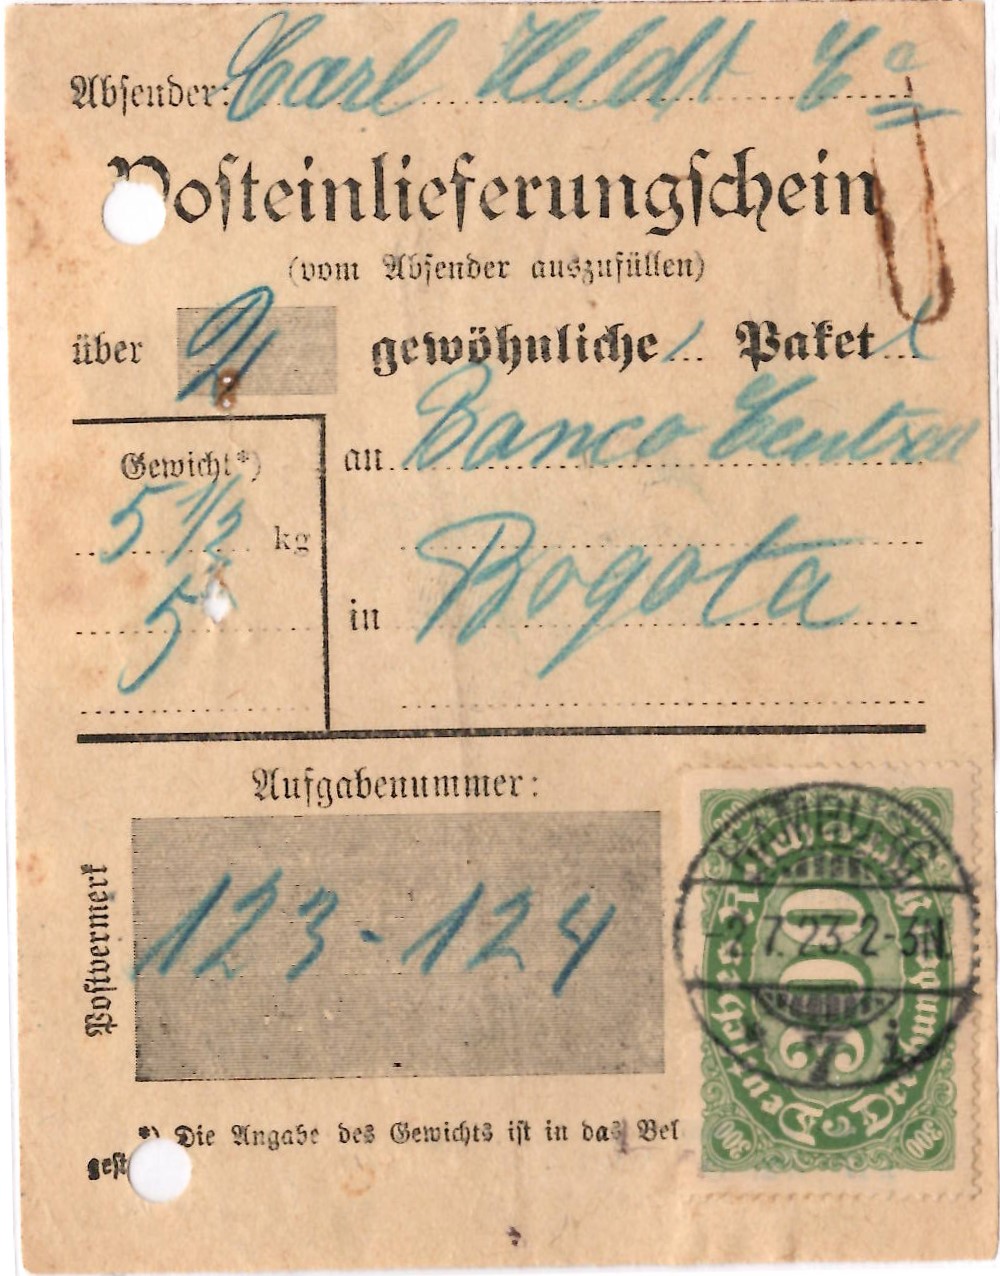 Absender: Carl Heldt Co
Posteinlieferungschein
(vom Absender auszufüllen)
über 2 gewöhnliche Paket
Gewicht*)
an Banco Central
5 1/2 kg
5
in Bogota
Aufgabenummer:
Postvermerk
123-124
HAMBURG
-2.7.23.2-3N.
* 7 i
Deutsches Reich
300
*) Die Angabe des Gewichts ist in das Bel
gest